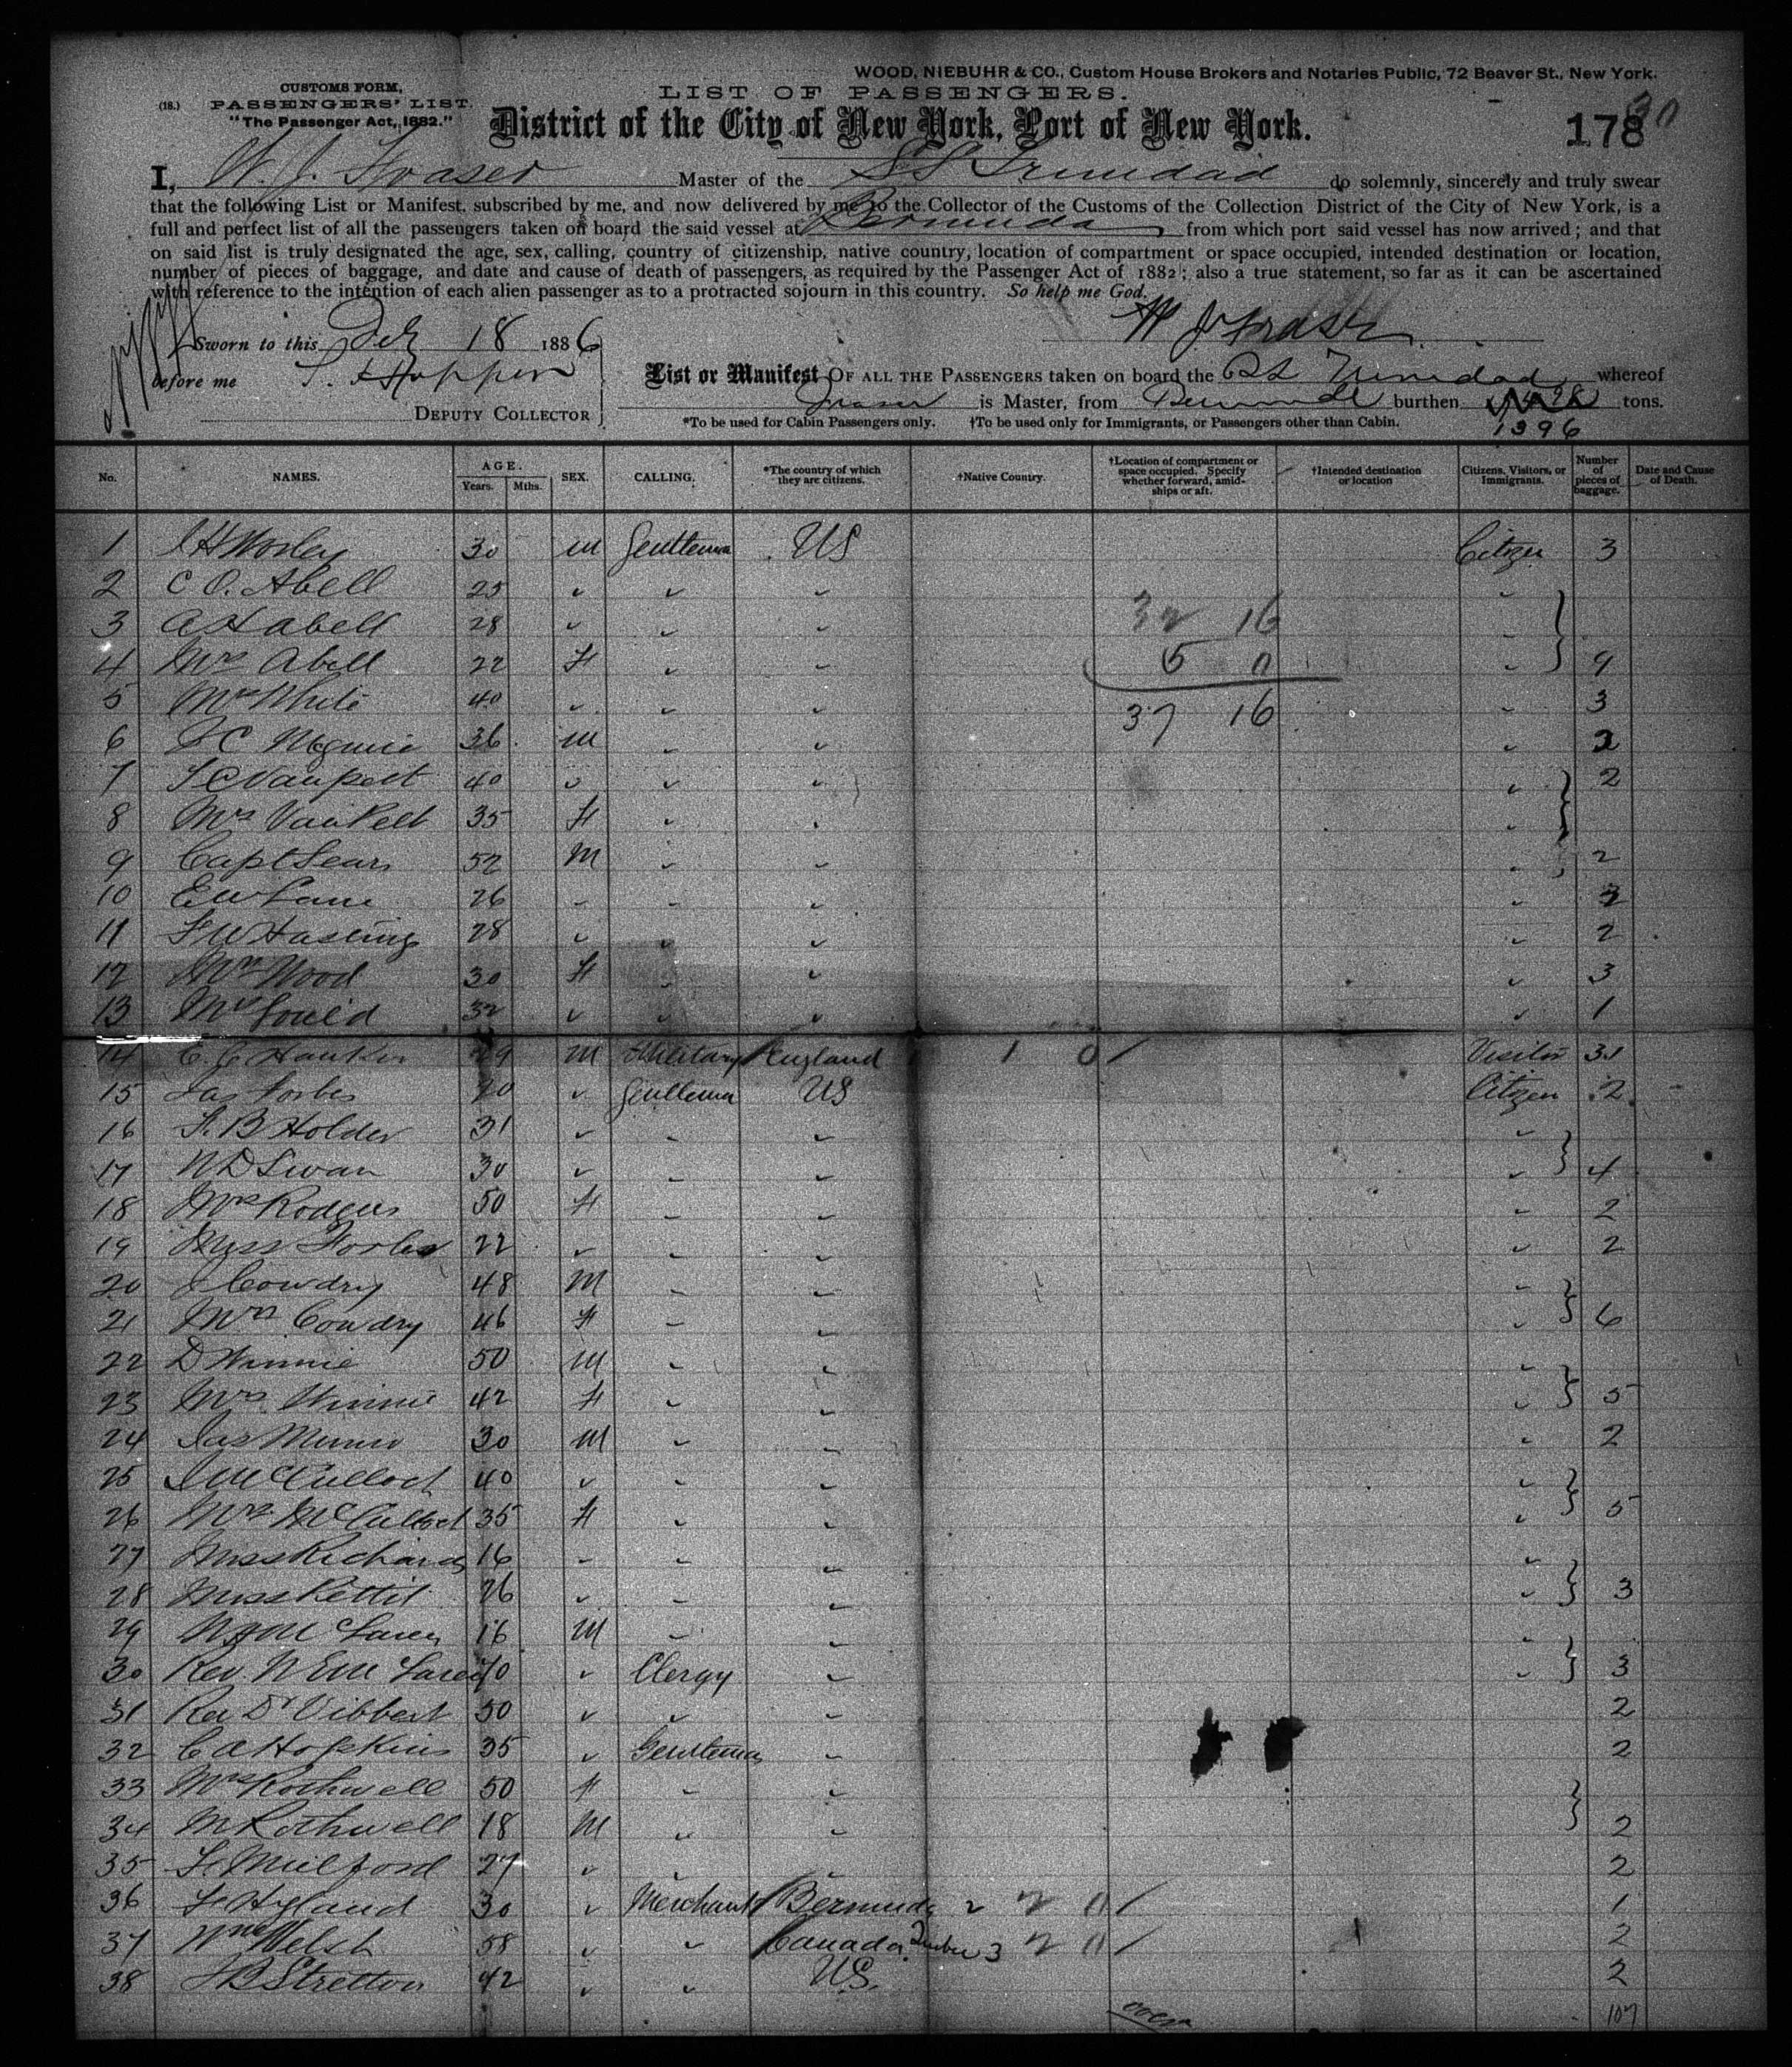 WOOD, NIEBUHR & CO., Custom House Brokers and Notaries Public, 72 Beaver St., New York.
CUSTOMS FORM,
(18.) PASSENGERS' LIST.
"The Passenger Act, 1882."
LIST OF PASSENGERS.
District of the City of New York, Port of New York.
178
30
I, W. J. Fraser Master of the SS Trinidad do solemnly, sincerely and truly swear
that the following List or Manifest, subscribed by me, and now delivered by me to the Collector of the Customs of the Collection District of the City of New York, is a
full and perfect list of all the passengers taken on board the said vessel at Bermuda from which port said vessel has now arrived; and that
on said list is truly designated the age, sex, calling, country of citizenship, native country, location of compartment or space occupied, intended destination or location,
number of pieces of baggage, and date and cause of death of passengers, as required by the Passenger Act of 1882; also a true statement, so far as it can be ascertained
with reference to the intention of each alien passenger as to a protracted sojourn in this country. So help me God.
W J Fraser
Sworn to this 18 1886
before me
DEPUTY COLLECTOR
List or Manifest OF ALL THE PASSENGERS taken on board the SS Trinidad whereof
Fraser is Master, from Bermuda burthen tons.
1396
*To be used for Cabin Passengers only. †To be used only for Immigrants, or Passengers other than Cabin.
No. NAMES. AGE. Years. Mths. SEX. CALLING. *The country of which they are citizens. †Native Country. †Location of compartment or space occupied. Specify whether forward, amid-ships or aft. †Intended destination or location Citizens, Visitors, or Immigrants. Number of pieces of baggage. Date and Cause of Death.
1 Worley 30 M Gentleman US Citizen 3
2 C O. Abell 25 " " " "
3 A H Abell 28 " " " "
4 Mrs Abell 22 F " " " 9
5 Mrs White 40 " " " " 3
6 C Mcguire 36 M " " " 2
7 VanPelt 40 " " " " 2
8 Mrs VanPelt 35 F " " "
9 Capt Sears 52 M " " " 2
10 E W Lane 26 " " " "
11 F W Hastings 28 " " " " 2
12 Mrs Wood 30 F " " " 3
13 Gould 32 " " " " 1
14 29 M Military England 1 1 0 Visitor 3
15 Jas Forbes " Gentleman US Citizen 2
16 Holder 31 " " " "
17 W D Swan 30 " " " " 4
18 Mrs Rodgers 50 F " " " 2
19 Miss Forbes 22 " " " " 2
20 J Cowdry 48 M " " "
21 Mrs Cowdry 46 F " " " 6
22 D Winnie 50 M " " "
23 Mrs Winnie 42 F " " " 5
24 Jas Munro 30 M " " " 2
25 McCulloch 40 " " " "
26 Mrs McCulloch 35 F " " " 5
27 Miss Richards 16 " " " "
28 Miss Pettit 26 " " " " 3
29 16 M " " "
30 Rev. " Clergy " " 3
31 Rev Dr Vibbert 50 " " " 2
32 C A Hopkins 35 " Gentleman " 2
33 Mrs Rothwell 50 F " "
34 M Rothwell 18 M " " 2
35 Milford 27 " " " 2
36 Hyland 30 " Merchant Bermuda 2 2 0 1
37 Wm Welsh 58 " " Canada 3 2 0 2
38 Stretton 42 " " US. 2
32 16
5 0
37 16
over
107